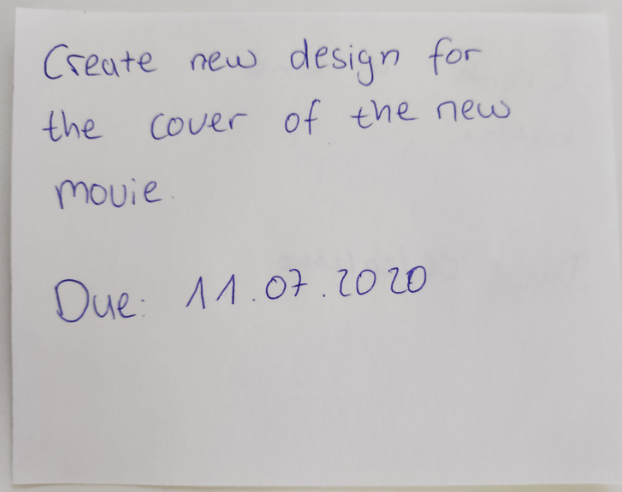 Create new design for
the cover of the new
movie.
Due: 11.07.2020